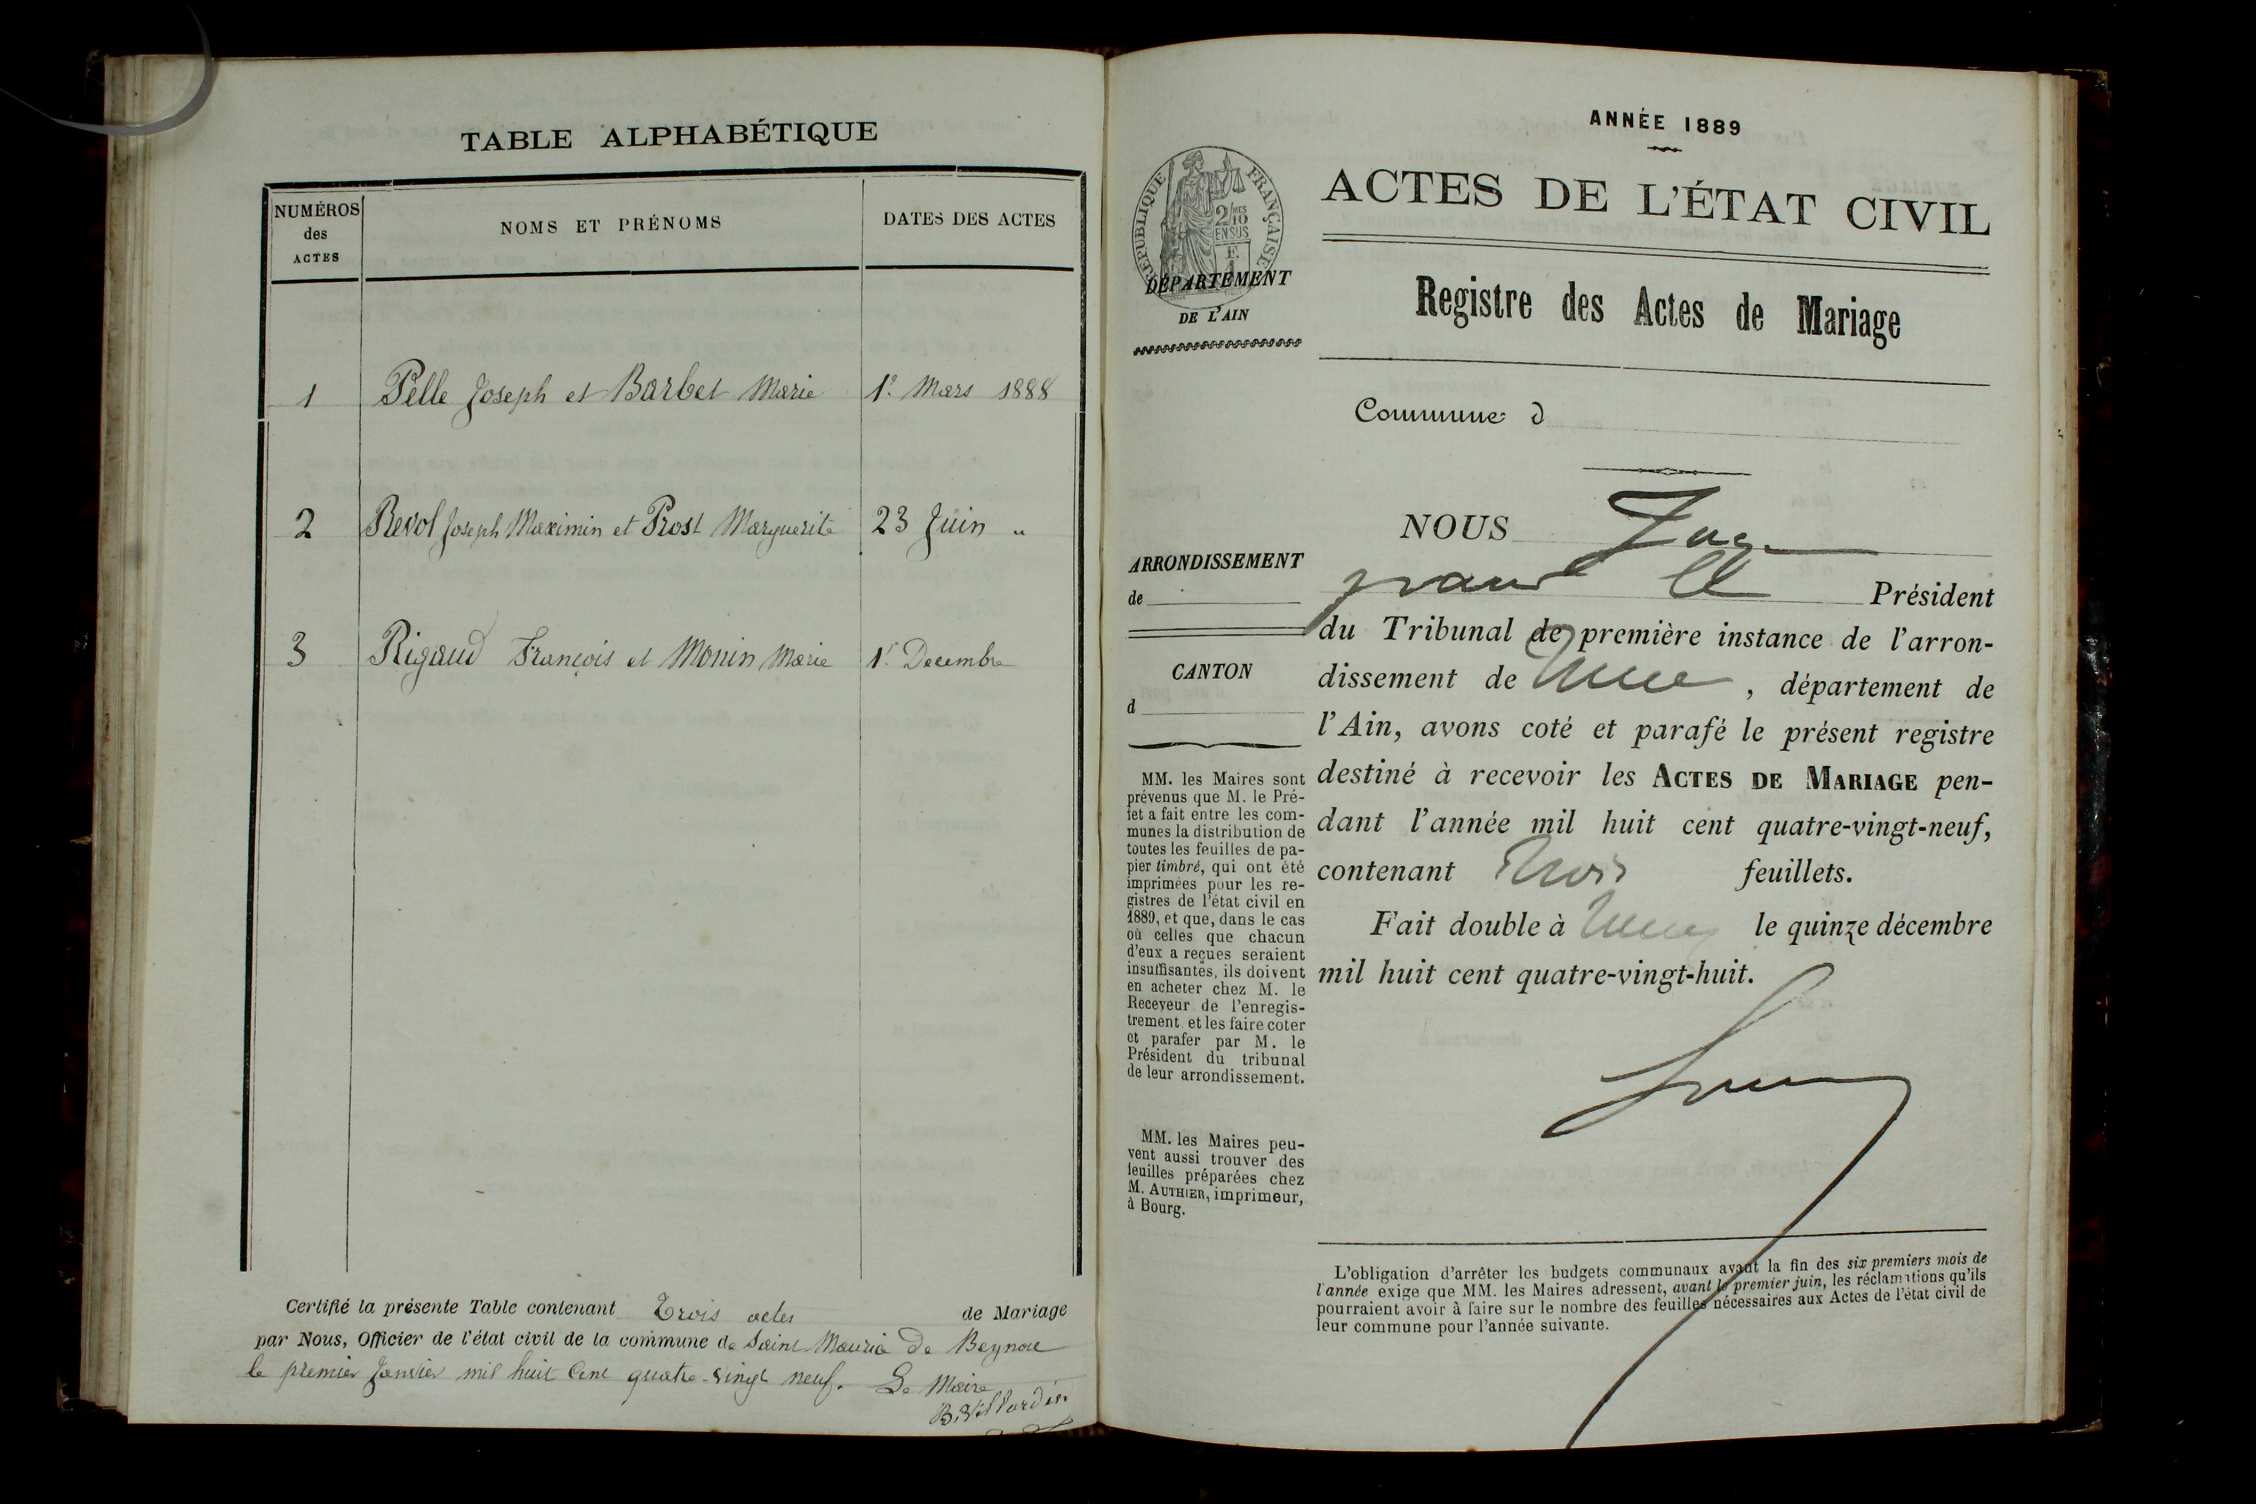 TABLE ALPHABÉTIQUE
NUMÉROS des ACTES
NOMS ET PRÉNOMS
DATES DES ACTES
1 Pelle Joseph et Barbet Marie 1er Mars 1888
2 Revol Joseph Maximin et Prost Marguerite 23 Juin "
3 Rigaud François et Monin Marie 1er Decembre
Certifié la présente Table contenant Trois actes de Mariage
par Nous, Officier de l'état civil de la commune de Saint Maurice De Beynou
le premier Janvier mil huit Cent quatre-vingt neuf. Le Maire
ANNÉE 1889
RÉPUBLIQUE FRANÇAISE
2/10 EN SUS
DÉPARTEMENT
DE L'AIN
ACTES DE L'ÉTAT CIVIL
Registre des Actes de Mariage
Commune d
ARRONDISSEMENT
de
CANTON
d
MM. les Maires sont
prévenus que M. le Pré-
fet a fait entre les com-
munes la distribution de
toutes les feuilles de pa-
pier timbré, qui ont été
imprimées pour les re-
gistres de l'état civil en
1889, et que, dans le cas
où celles que chacun
d'eux a reçues seraient
insuffisantes, ils doivent
en acheter chez M. le
Receveur de l'enregis-
trement et les faire coter
et parafer par M. le
Président du tribunal
de leur arrondissement.
MM. les Maires peu-
vent aussi trouver des
feuilles préparées chez
M. AUTHIER, imprimeur,
à Bourg.
NOUS
Président
du Tribunal de première instance de l'arron-
dissement de , département de
l'Ain, avons coté et parafé le présent registre
destiné à recevoir les ACTES DE MARIAGE pen-
dant l'année mil huit cent quatre-vingt-neuf,
contenant trois feuillets.
Fait double à le quinze décembre
mil huit cent quatre-vingt-huit.
L'obligation d'arrêter les budgets communaux avant la fin des six premiers mois de
l'année exige que MM. les Maires adressent, avant le premier juin, les réclamations qu'ils
pourraient avoir à faire sur le nombre des feuilles nécessaires aux Actes de l'état civil de
leur commune pour l'année suivante.